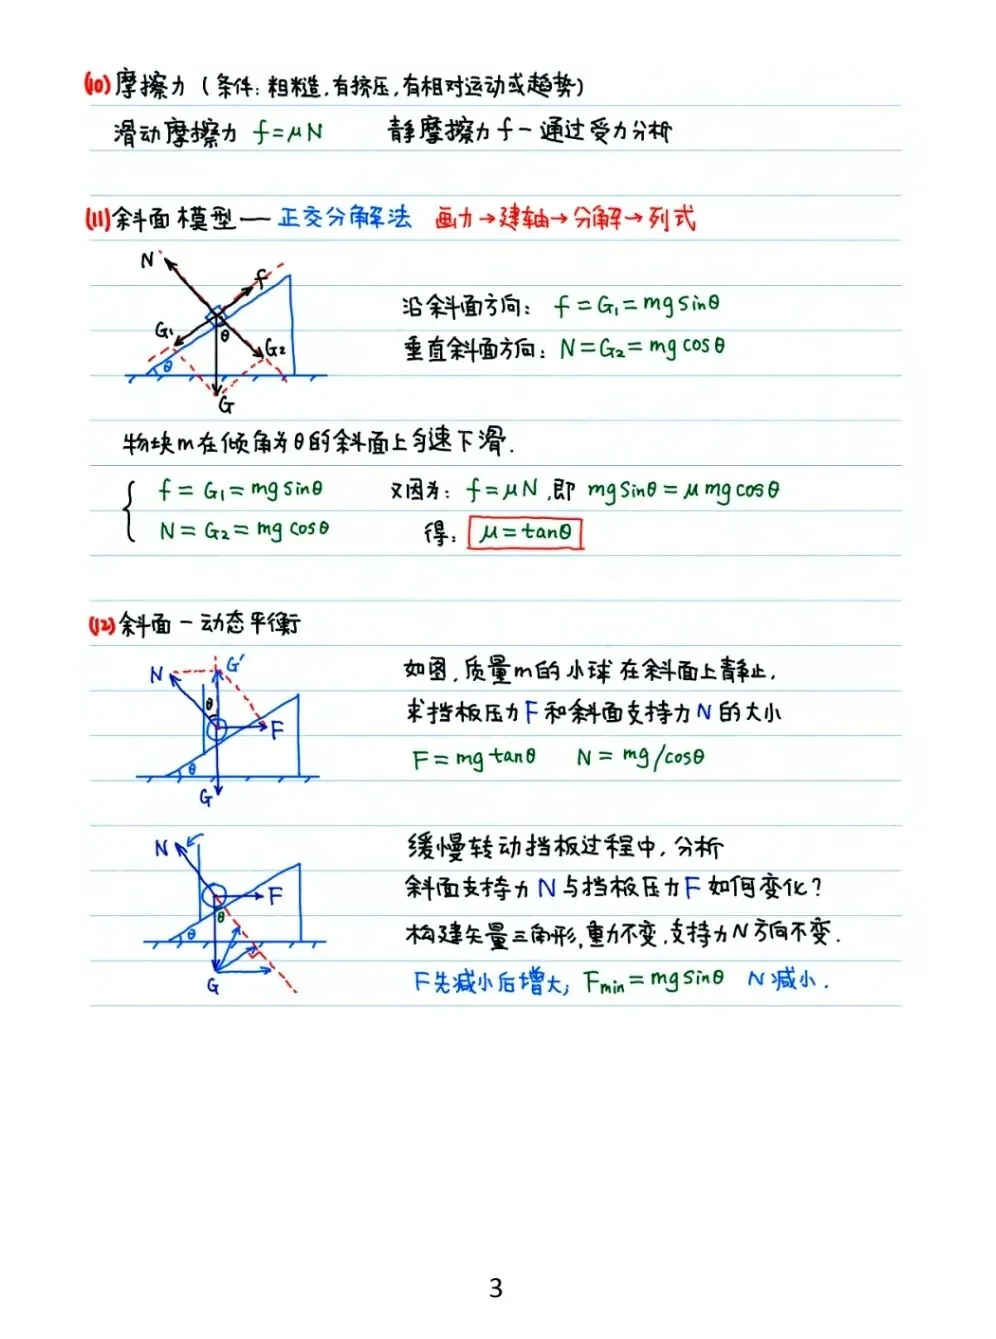 (10) 摩擦力 (条件: 粗糙, 有挤压, 有相对运动或趋势)
滑动摩擦力 f=μN 静摩擦力 f－通过受力分析
(11) 斜面模型 — 正交分解法 画力→建轴→分解→列式
N
f
G₁
θ
G₂
θ
G
沿斜面方向: f=G₁=mgsinθ
垂直斜面方向: N=G₂=mgcosθ
物块m在倾角为θ的斜面上匀速下滑.
f=G₁=mgsinθ 又因为: f=μN, 即 mgsinθ=μmgcosθ
N=G₂=mgcosθ 得: μ=tanθ
(12) 斜面－动态平衡
N
G'
θ
F
θ
G
如图, 质量m的小球在斜面上静止,
求挡板压力F和斜面支持力N的大小
F=mgtanθ N=mg/cosθ
N
F
θ
θ
G
缓慢转动挡板过程中, 分析
斜面支持力N与挡板压力F如何变化?
构建矢量三角形, 重力不变, 支持力N方向不变.
F先减小后增大, Fmin=mgsinθ N减小.
3